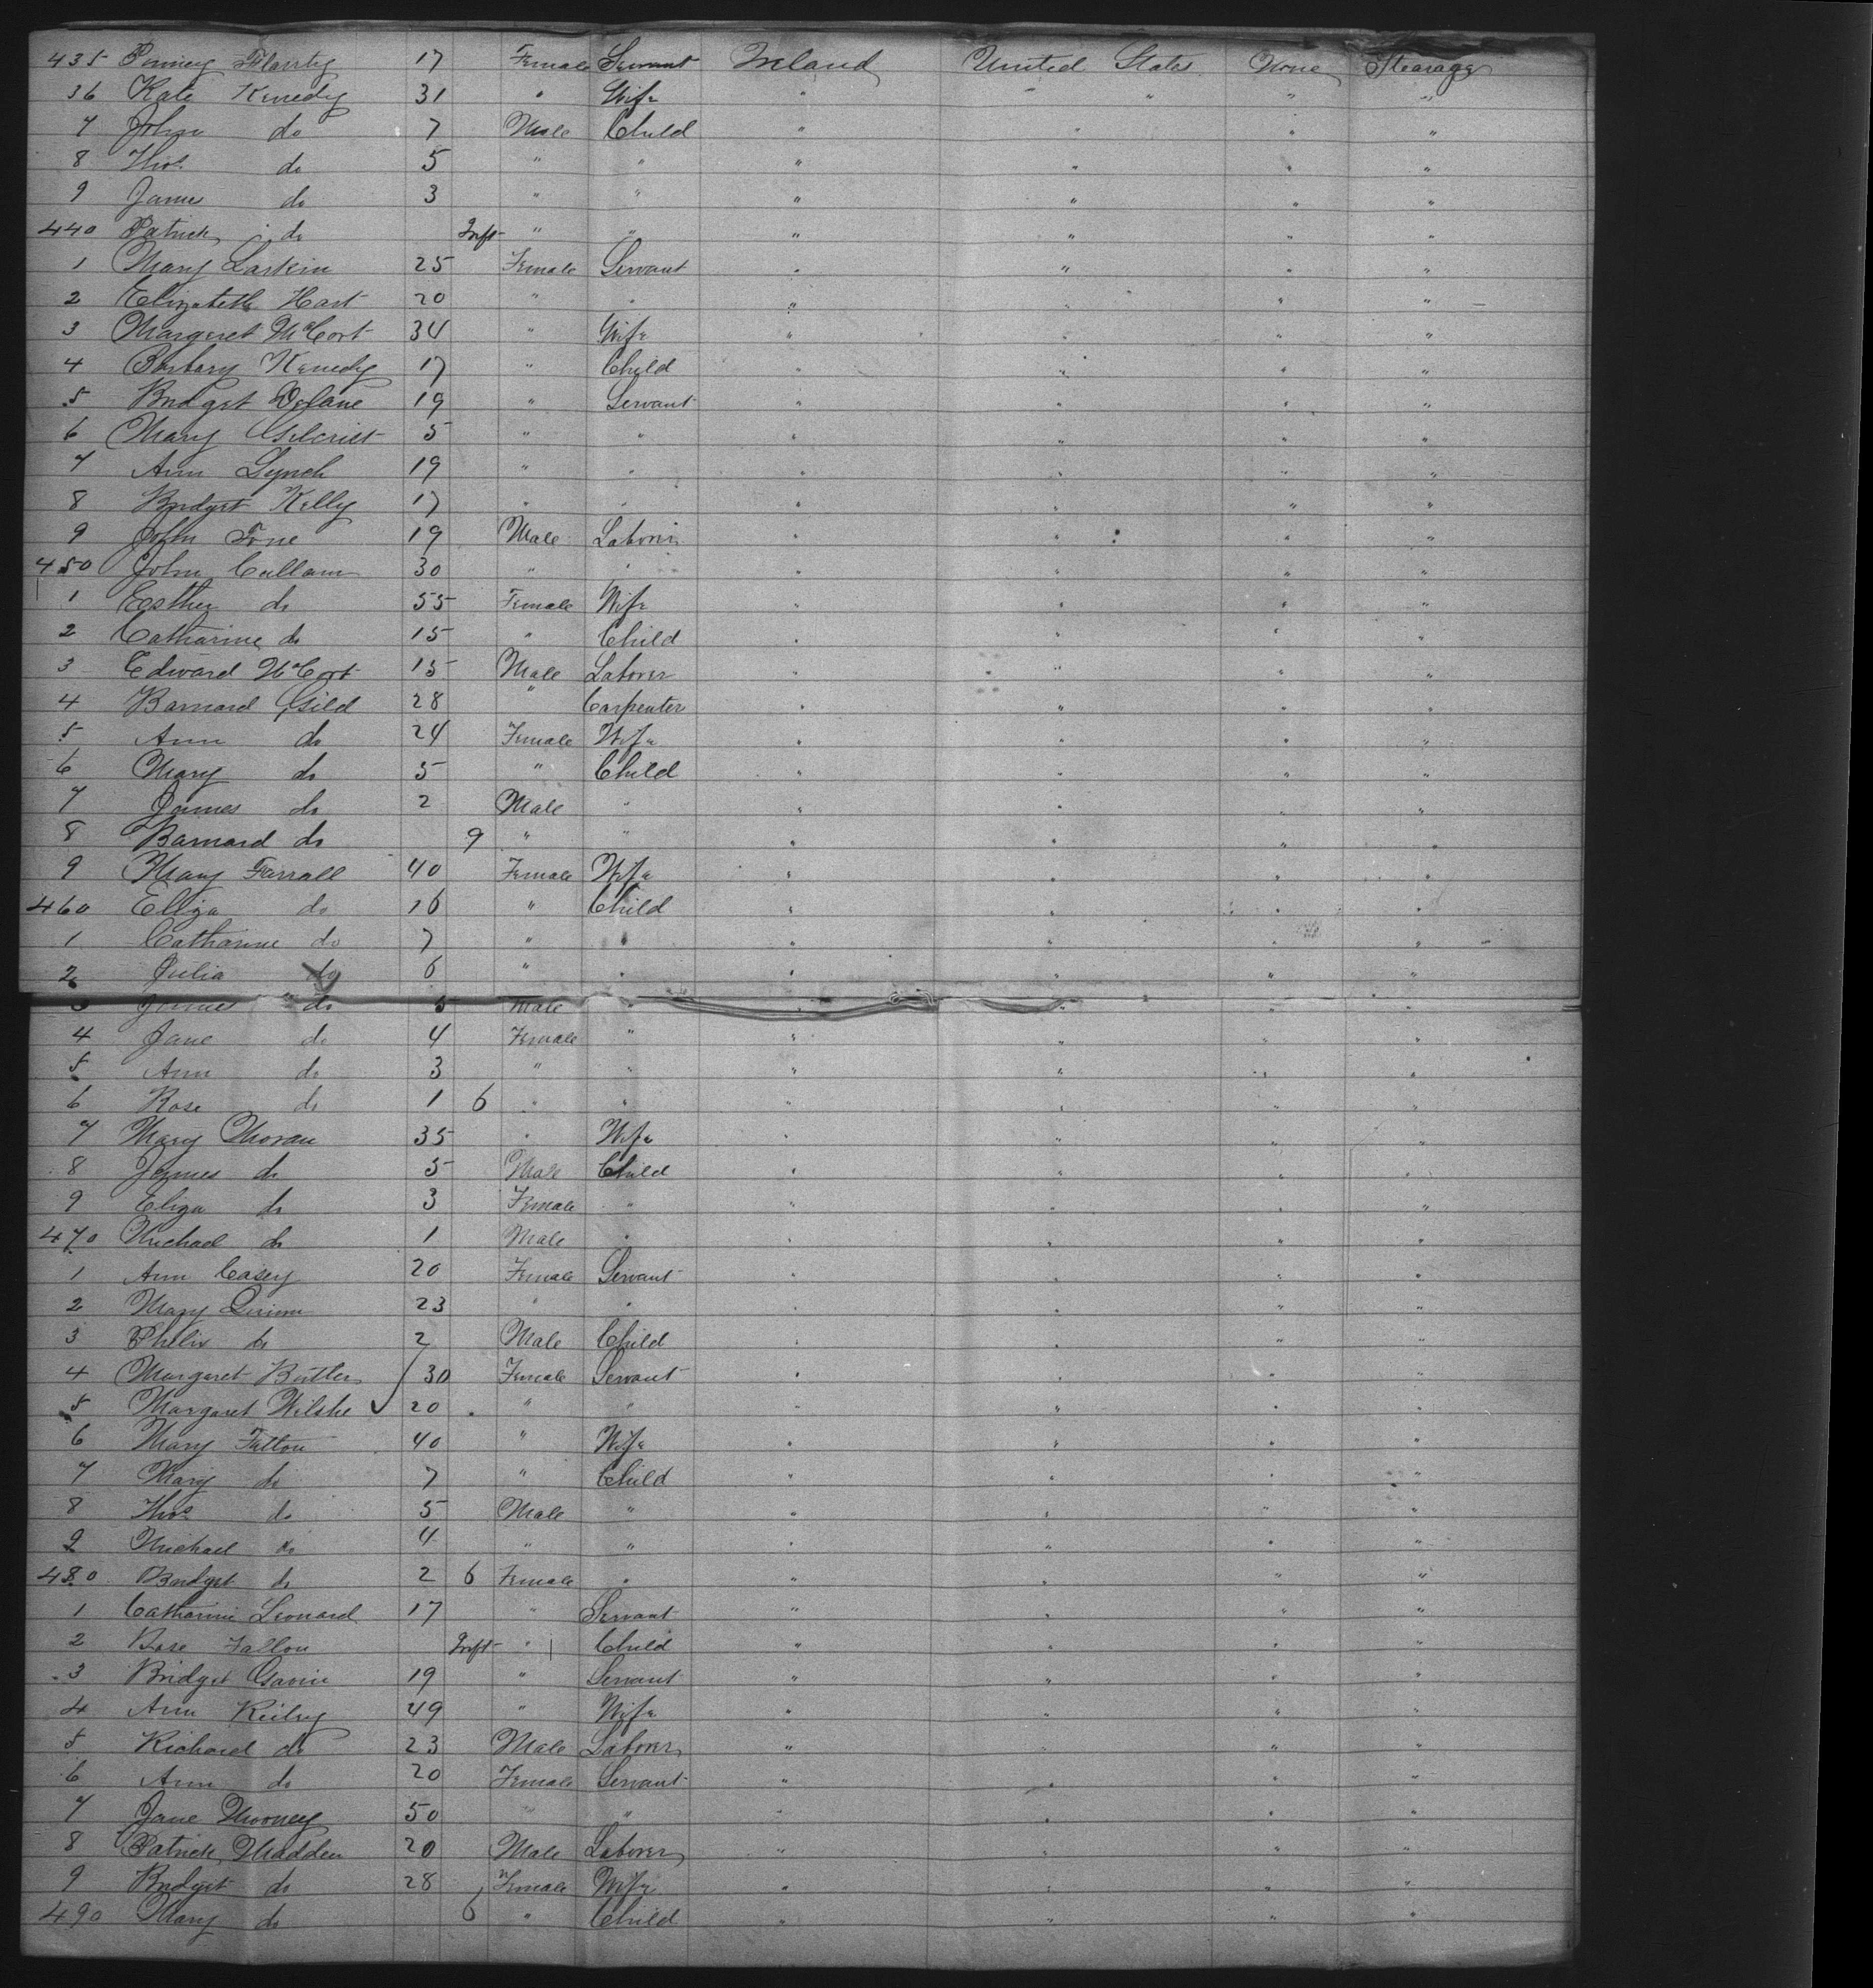 435 Penny Flarrity 17 Female Servant Ireland United States None Stearage
36 Kate Kenedy 31 " Wife " " " " "
7 John do 7 Male Child " " " "
8 Thos do 5 " " " " " "
9 James do 3 " " " " " "
440 Patrick do Inft " " " " " "
1 Mary Larkin 25 Female Servant " " " "
2 Elizabeth Hart 20 " " " " " "
3 Margaret McCort 34 " Wife " " " "
4 Barbary Kenedy 17 " Child " " " "
5 Bridget Delane 19 " Servant " " " "
6 Mary Gilcrist 5 " " " " " "
7 Ann Lynch 19 " " " " " "
8 Bridget Kelly 17 " " " " " "
9 John Fone 19 Male Laborer " " " "
450 John Cullam 30 " " " " " "
1 Esther do 55 Female Wife " " " "
2 Catharine do 15 " Child " " " "
3 Edward McCort 15 Male Laborer " " " "
4 Barnard Gild 28 " Carpenter " " " "
5 Ann do 24 Female Wife " " " "
6 Mary do 5 " Child " " " "
7 James do 2 Male " " " " "
8 Barnard do 9 " " " " " "
9 Mary Farrall 40 Female Wife " " " "
460 Eliza do 16 " Child " " " "
1 Catharine do 7 " " " " " "
2 Julia do 6 " " " " " "
3 James do 5 Male " " " " "
4 Jane do 4 Female " " " " "
5 Ann do 3 " " " " " "
6 Rose do 1 6 " " " " " "
7 Mary Moran 35 " Wife " " " "
8 James do 5 Male Child " " " "
9 Eliza do 3 Female " " " " "
470 Michael do 1 Male " " " " "
1 Ann Casey 20 Female Servant " " " "
2 Mary 23 " " " " " "
3 Philix do 2 Male Child " " " "
4 Margaret Butler 30 Female Servant " " " "
5 Margaret Wilshe 20 " " " " " "
6 Mary Fallon 40 " Wife " " " "
7 Mary do 7 " Child " " " "
8 Thos do 5 Male " " " " "
9 Michael do 4 " " " " " "
480 Bridget do 2 6 Female " " " " "
1 Catharine Leonard 17 " Servant " " " "
2 Rose Fallon Inft " Child " " " "
3 Bridget Gavin 19 " Servant " " " "
4 Ann Keilry 49 " Wife " " " "
5 Richard do 23 Male Laborer " " " "
6 Ann do 20 Female Servant " " " "
7 Jane Mooney 50 " " " " " "
8 Patrick Madden 20 Male Laborer " " " "
9 Bridget do 28 Female Wife " " " "
490 Mary do 6 " Child " " " "